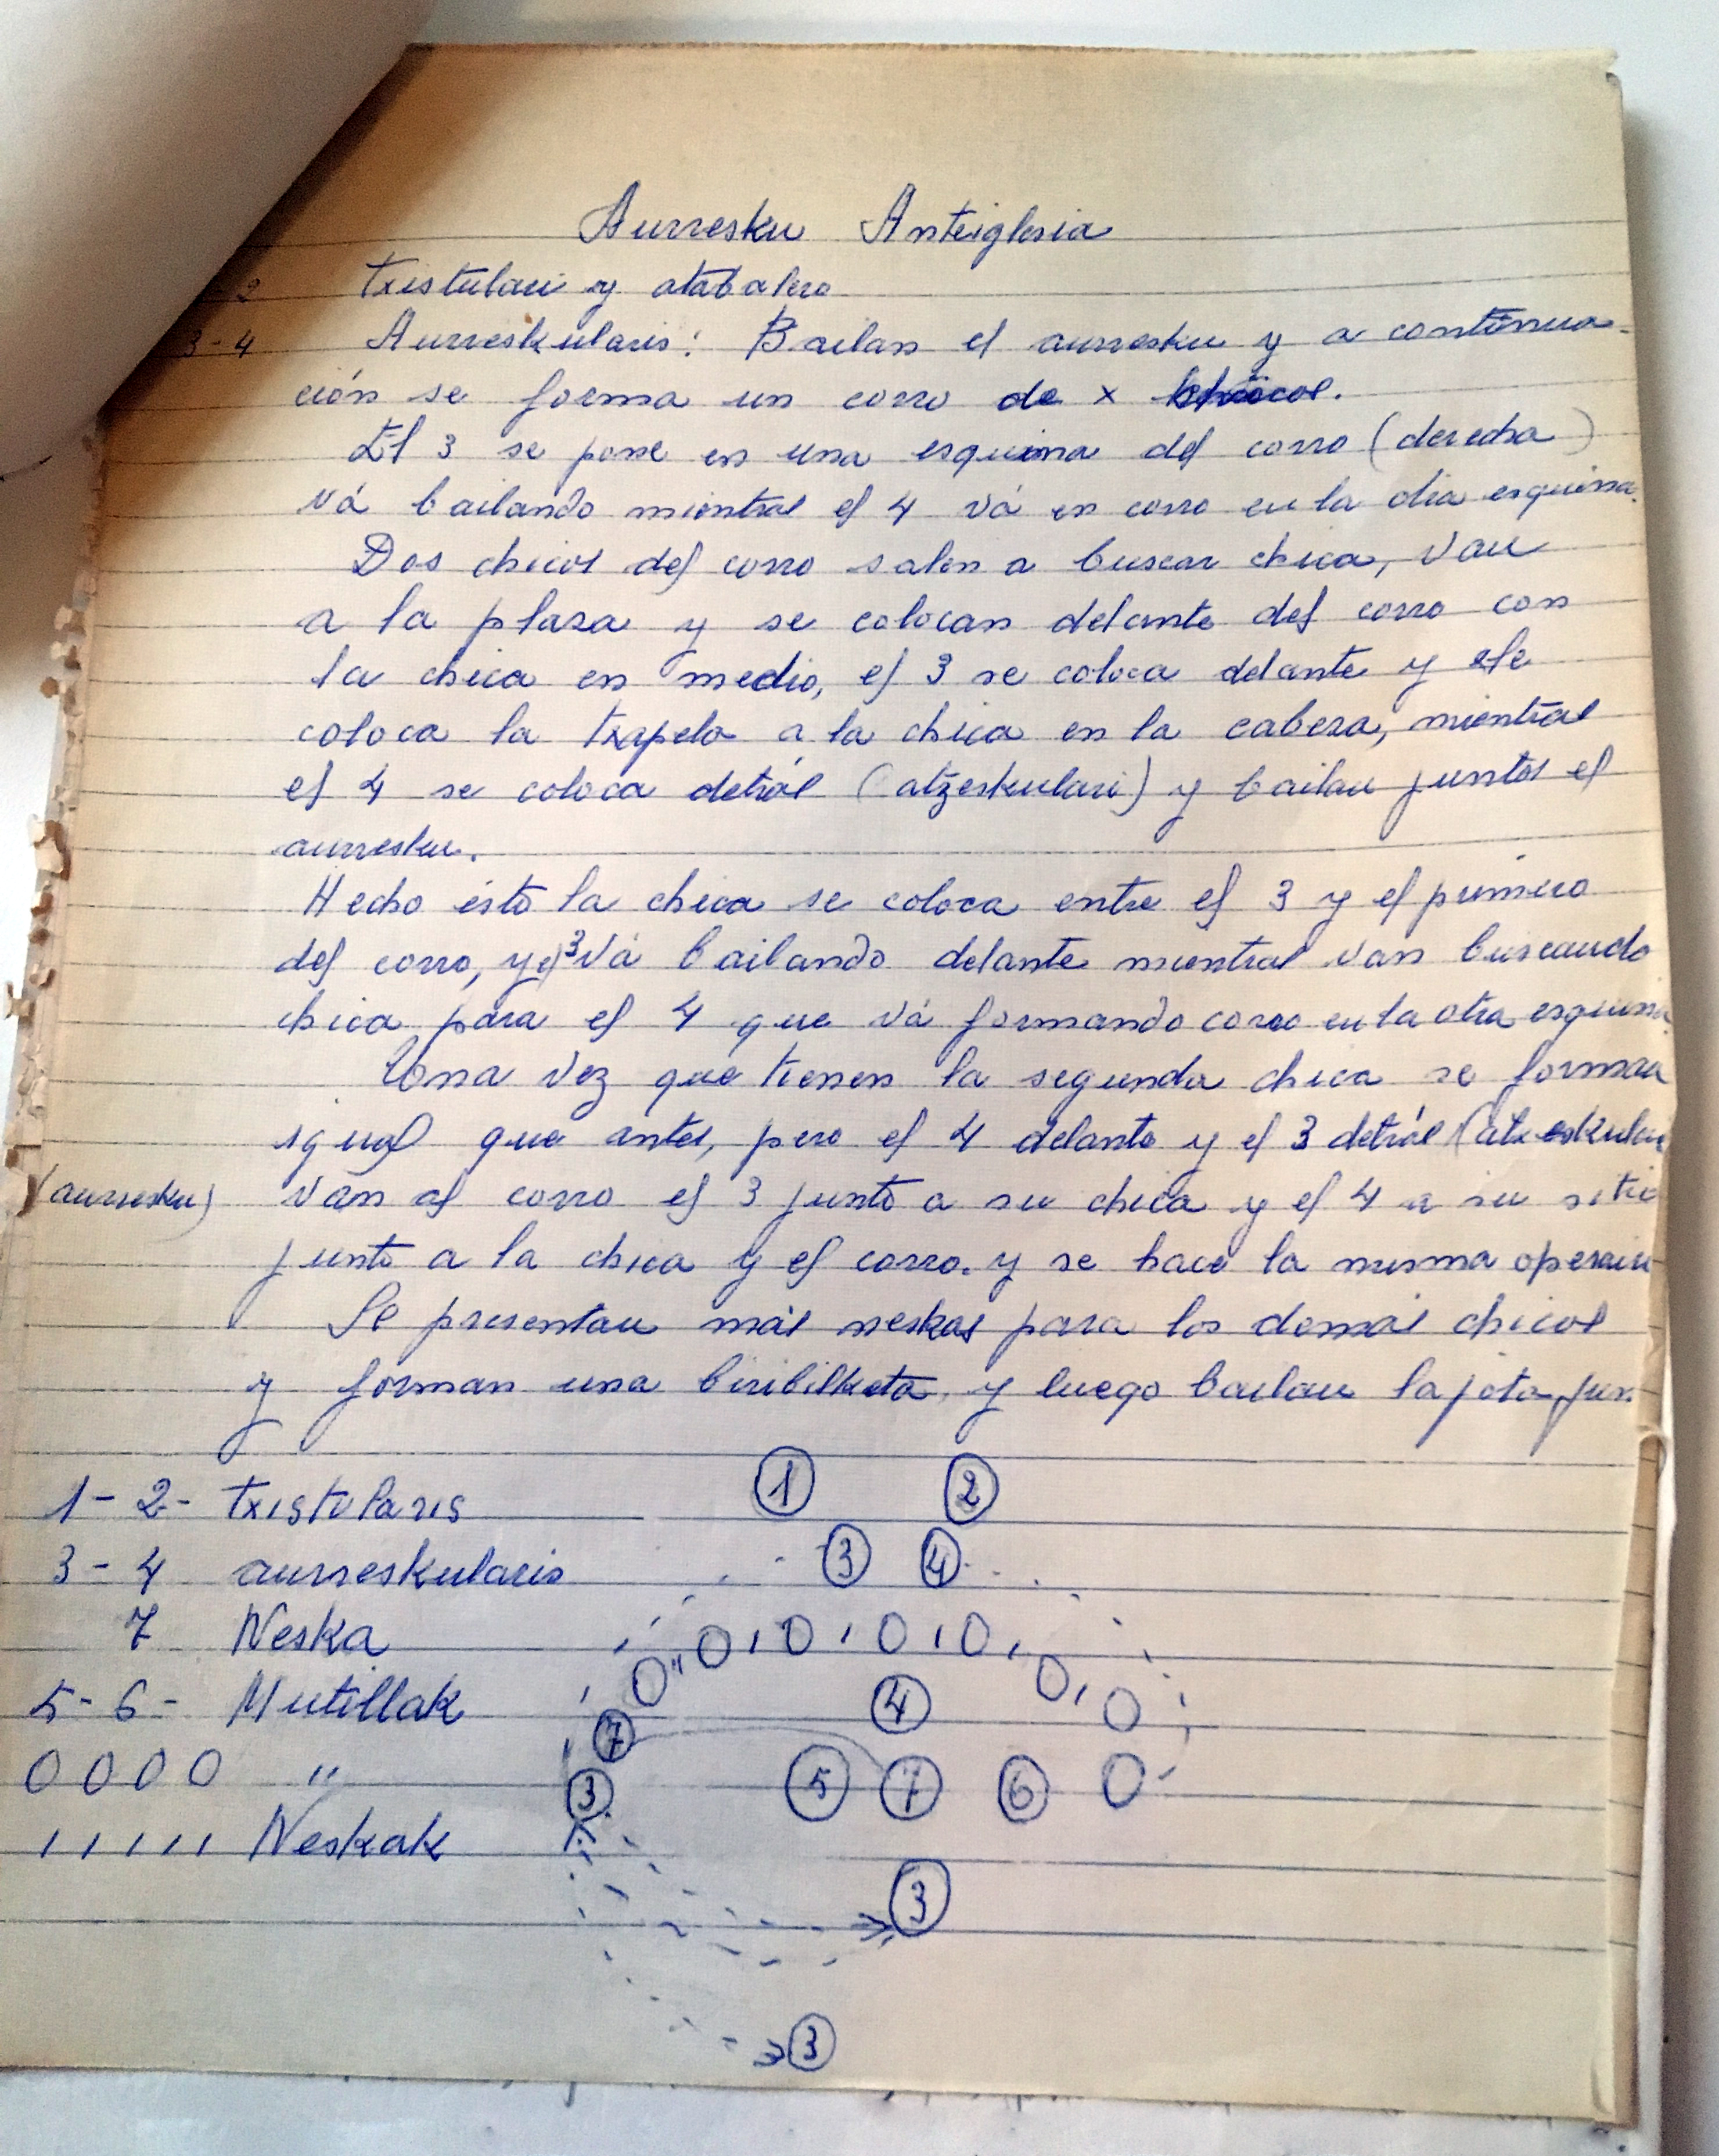 Aurresku Anteiglesia
2 Txistulari y atabalero
3-4 Aurreskularis: Bailan el aurresku y a continua-
ción se forma un corro de x chicos.
El 3 se pone en una esquina del corro (derecha)
vá bailando mientras el 4 vá en corro en la otra esquina.
Dos chicos del corro salen a buscar chica, van
a la plaza y se colocan delante del corro con
la chica en medio, el 3 se coloca delante y
coloca la txapela a la chica en la cabeza, mientras
el 4 se coloca detrás (atzeskulari) y bailan juntos el
aurresku.
Hecho ésto la chica se coloca entre el 3 y el primero
del corro, y el 3 vá bailando delante mientras van buscando
chica para el 4 que vá formando corro en la otra esquina.
Una vez que tienen la segunda chica se forman
igual que antes, pero el 4 delante y el 3 detrás (atzeskulari
(aurresku) van al corro el 3 junto a su chica y el 4 a su sitio
junto a la chica y el corro. y se hace la misma
Se presentan más neskas para los demás chicos
y forman una biribilketa y luego bailan la jota
1-2- txistularis
① ②
3-4 aurreskularis
③ ④
7 Neska
0 , 0 , 0 , 0 ,
5-6- Mutillak
0 " ④ 0 , 0
⑦
0 0 0 0 "
③ ⑤ ⑦ ⑥ 0
, , , , , Neskak
③
③